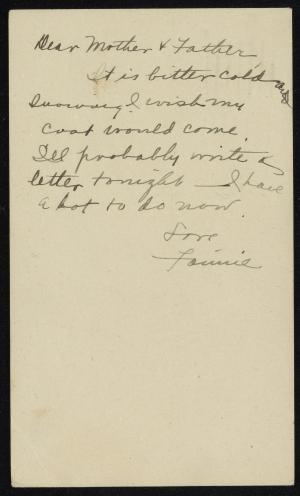 Dear Mother & Father,
It is bitter cold and
snowing. I wish my
coat would come.
I'll probably write a
letter tonight — I have
a lot to do now.
Love
Fannie